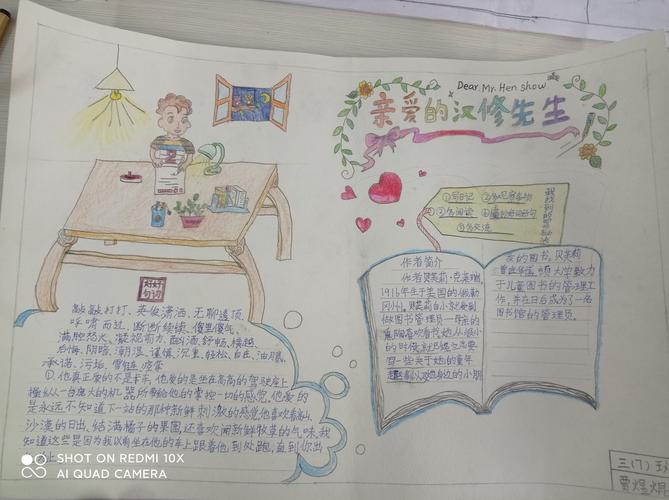 Dear Mr. Hen show
亲爱的汉修先生
①写日记
③多阅读
⑤多交流
好词
好句
敲敲打打、英俊潇洒、无聊透顶
呼啸而过、断断续续、傻里傻气
满腔怒火、凝视前方、酣酒、舒畅
后悔、阴暗、潮湿、谨慎、沉重、轻松、自在、油腻
承诺、污垢、雪链、疲劳
①、他真正爱的不是卡车,他爱的是坐在高高的驾驶座上
操纵一台庞大的机器所带给他的掌控一切的感觉,他爱的
是永远不知道下一站的那种新鲜刺激的感觉他喜欢看
沙漠的日出、结满橘子的果园,还喜欢闻新鲜牧草的气味,我
知道这些是因为我以前坐在他的车上跟着他到处跑,直到你出
作者简介
作者贝芙莉·克莱瑞
1916年生于美国的俄勒
冈州。贝芙莉
做图书管理员
的时候
些关于她的童年
她身边的小朋
友的图书。贝芙莉
曾在华盛顿大学致力
于儿童图书的管理工
作,并在日后成为了一名
图书馆的管理员。
三(7)
贾煜
SHOT ON REDMI 10X
AI QUAD CAMERA